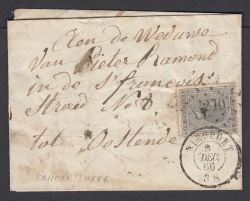 Aen de Weduwe
van Pieter Ramond
in de St françois
Straed No 8
tot Oostende
NIEUPORT
8
DEC
66